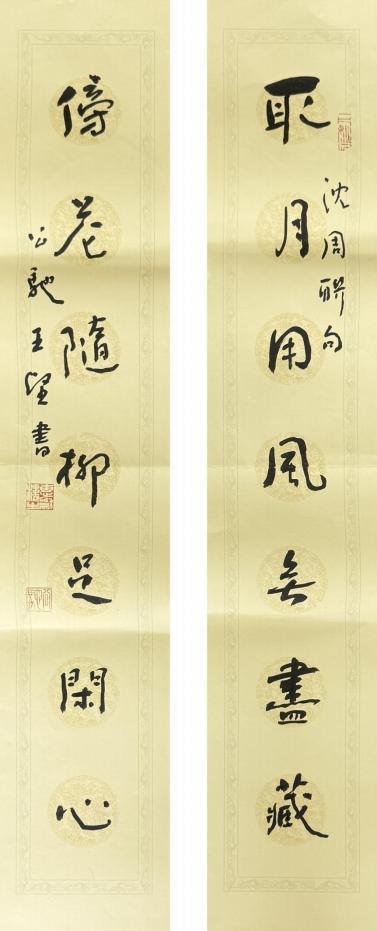 取月用風無盡藏
沈周聯句
傍花隨柳足閑心
公馳王望書